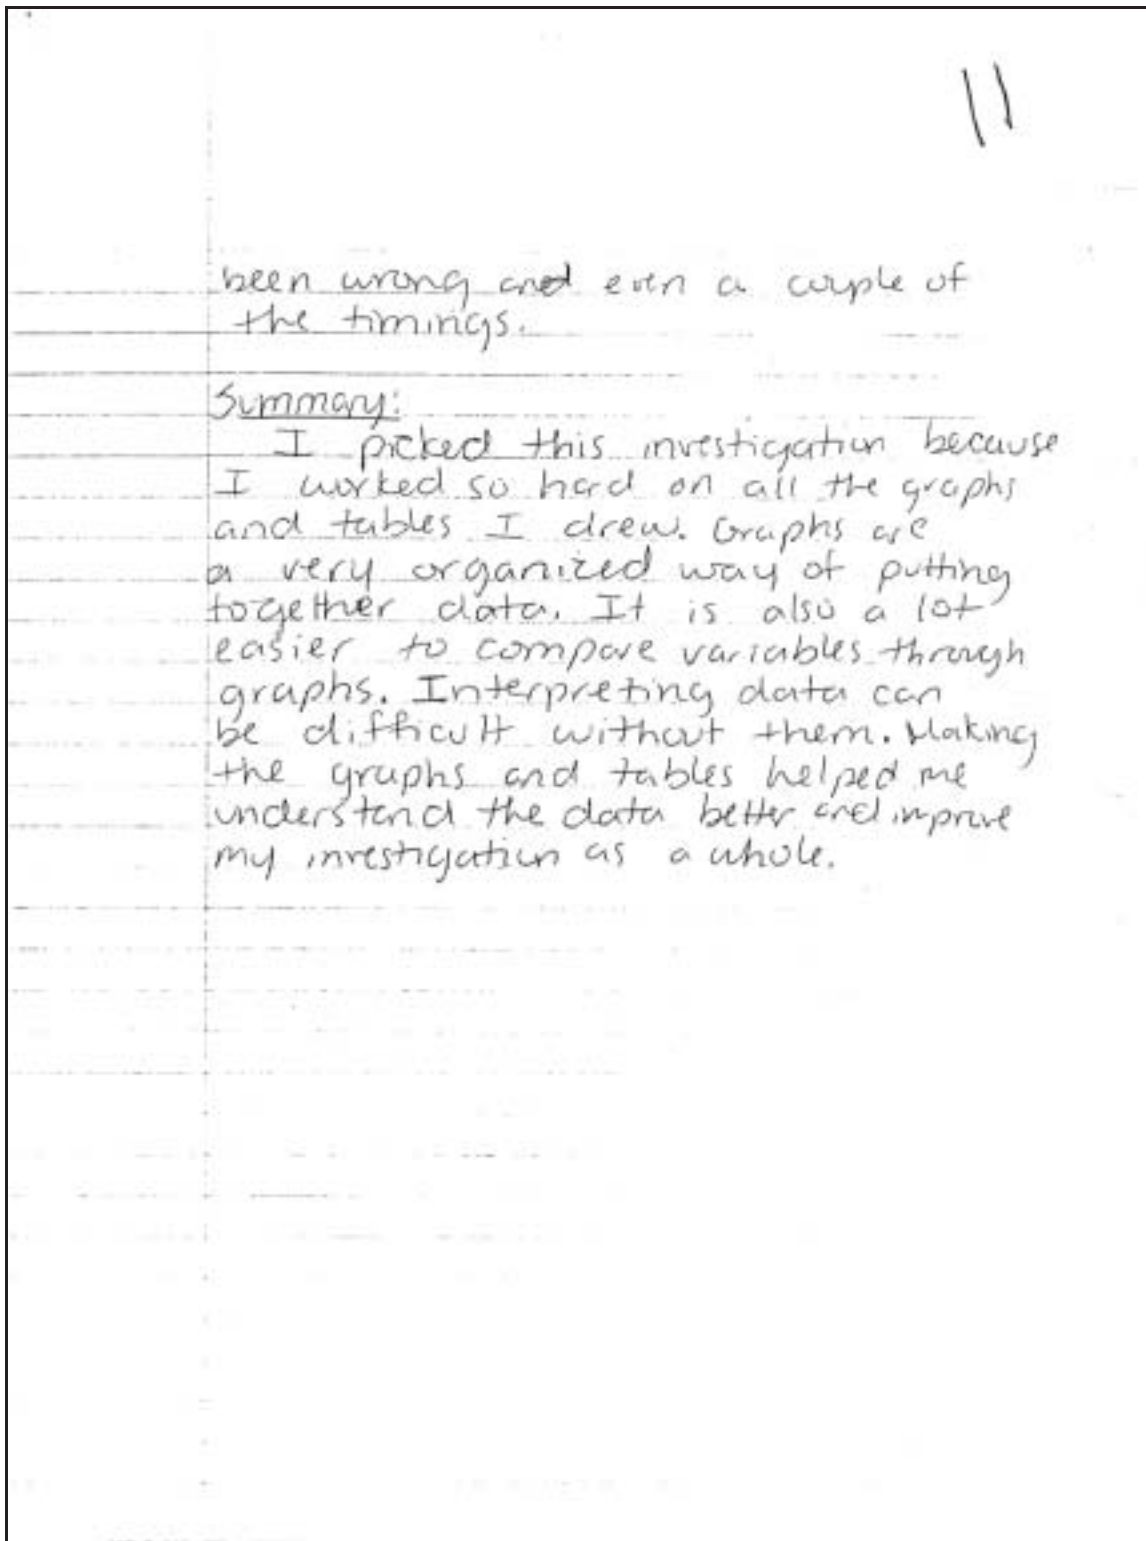 11
been wrong and even a couple of
the timings.
Summary:
I picked this investigation because
I worked so hard on all the graphs
and tables I drew. Graphs are
a very organized way of putting
together data. It is also a lot
easier to compare variables through
graphs. Interpreting data can
be difficult without them. Making
the graphs and tables helped me
understand the data better and improve
my investigation as a whole.